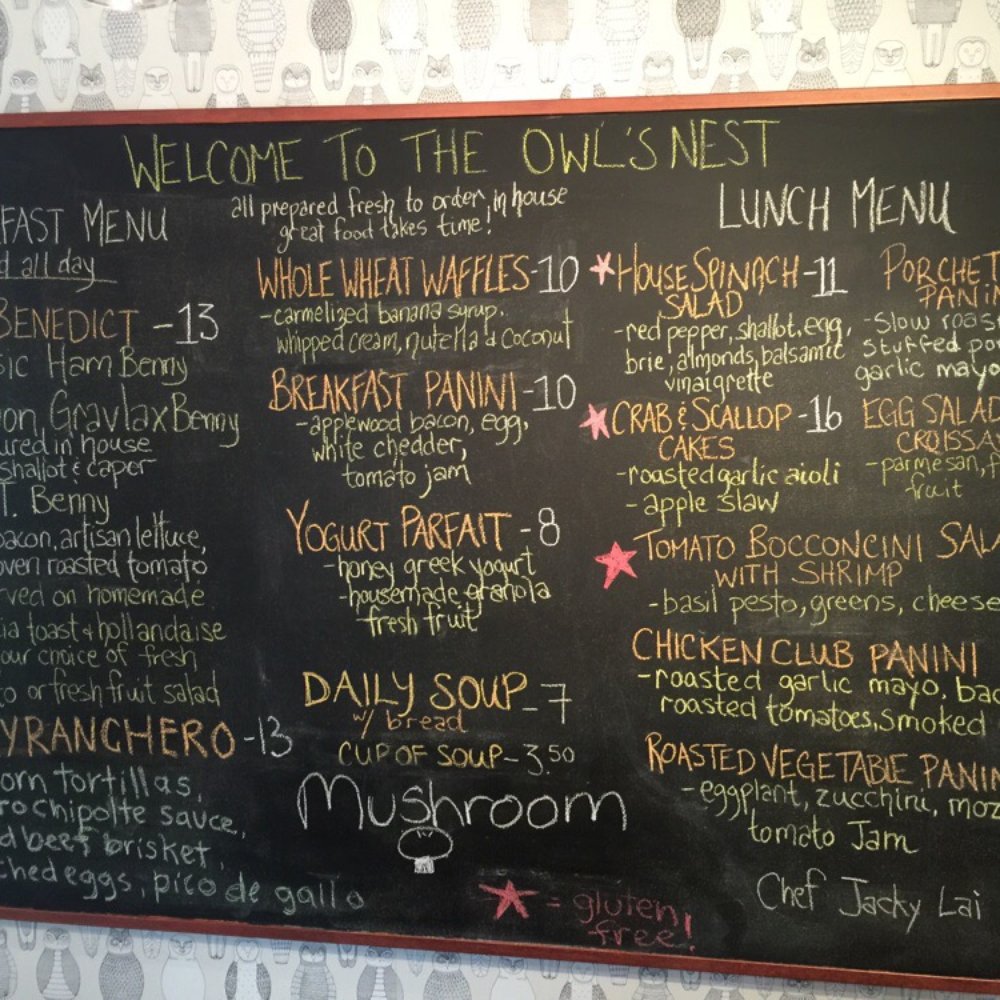 WELCOME TO THE OWL'S NEST
all prepared fresh to order, in house
great food takes time!
FAST MENU
d all day
BENEDICT -13
sic Ham Benny
on, Gravlax Benny
ured in house
shallot & caper
T. Benny
bacon, artisan lettuce,
oven roasted tomato
ved on homemade
ia toast & hollandaise
our choice of fresh
o or fresh fruit salad
YRANCHERO -13
orn tortillas,
ro chipolte sauce,
d beef brisket,
ched eggs, pico de gallo
WHOLE WHEAT WAFFLES -10
-carmelized banana syrup.
whipped cream, nutella & coconut
BREAKFAST PANINI -10
-applewood bacon, egg,
white chedder,
tomato jam
YOGURT PARFAIT -8
-honey greek yogurt
-housemade granola
fresh fruit
DAILY SOUP -7
w/ bread
CUP OF SOUP - 3.50
Mushroom
= gluten
free!
LUNCH MENU
HOUSE SPINACH -11
SALAD
-red pepper, shallot, egg,
brie, almonds, balsamic
vinaigrette
CRAB & SCALLOP -16
CAKES
-roasted garlic aioli
-apple slaw
TOMATO BOCCONCINI SALA
WITH SHRIMP
-basil pesto, greens, cheese
CHICKEN CLUB PANINI
-roasted garlic mayo, bac
roasted tomatoes, smoked
ROASTED VEGETABLE PANIN
-eggplant, zucchini, moz
tomato Jam
PORCHET
PANIN
-slow roas
stuffed por
garlic mayo
EGG SALAD
CROISSA
-parmesan, f
fruit
Chef Jacky Lai